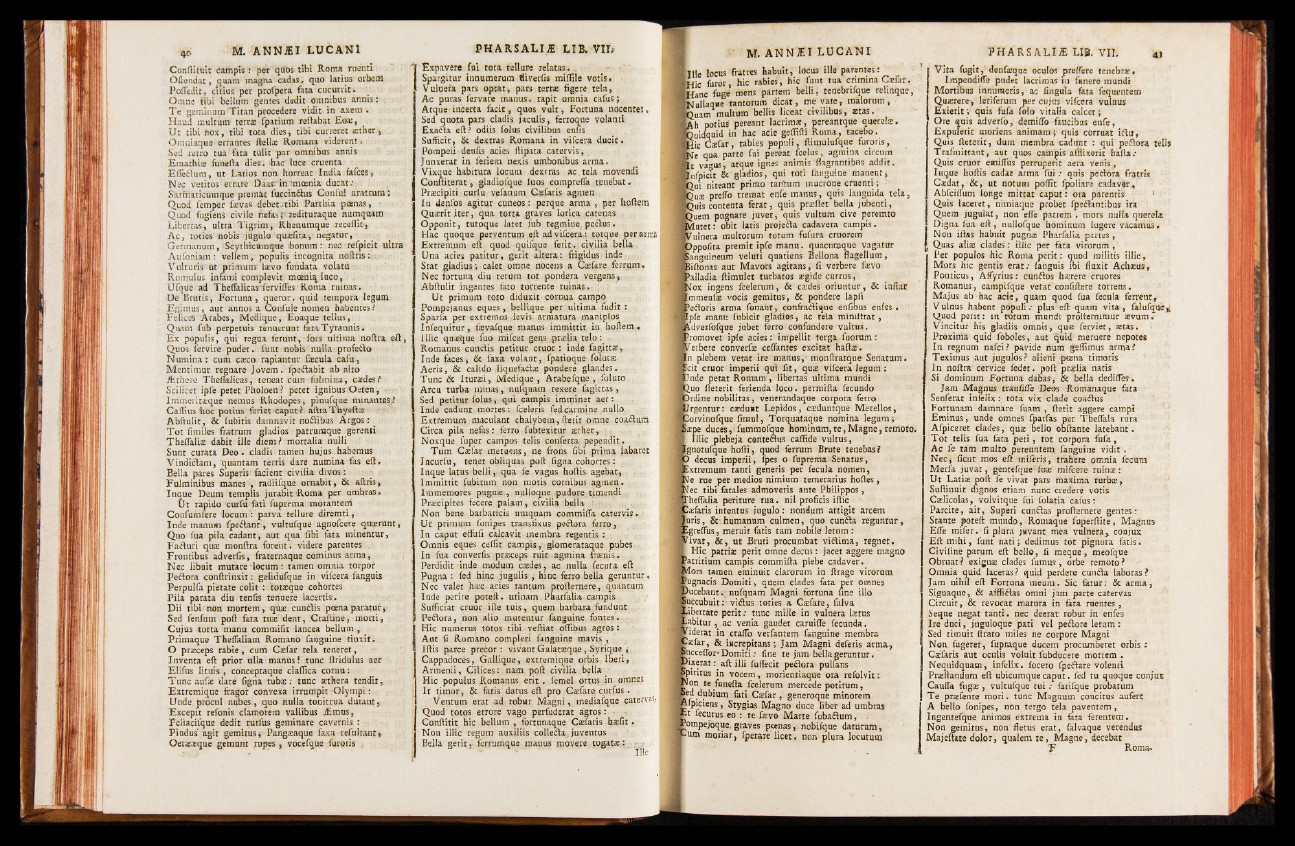 40 M. ANNÆI LUCANI
Conſtituit campis : per quos tibi Roma ruenti
Oſtendat, quam magna cadas, quo latius orbem
Poſſedit, citius per proſpera fata cucurrit.
Omne tibi bellum gentes dedit omnibus annis :
Te geminum Titan procedere vidit in axem.
Haud multum terræ ſpatium reſtabat Eoæ,
Ut tibi nox, tibi tota dies, tibi curreret æther ;
Omniaque errantes ſtellæ Romana viderent.
Sed retro tua fata tulit par omnibus annis
Emathiæ funeſta dies. hac luce cruenta
Effectum, ut Latios non horreat India faſces,
Nec vetitos errare Daas in mœnia ducat,
Sarmaticumque premat ſuccinctus Conſul aratrum :
Quod ſemper ſævas debet tibi Parthia pœnas,
Quod fugiens civile nefas ; redituraque numquam
Libertas, ultra Tigrim, Rhenumque receſſit,
Ac, toties nobis jugulo quæſita, negatur,
Germanum, Scythicumque bonum : nec reſpicit ultra
Auſoniam : vellem, populis incognita noſtris :
Vulturis ut primum lævo fundata volatu
Romulus infami complevit mœnia luco,
Uſque ad Theſſalicas ſerviſſes Roma ruinas.
De Brutis, Fortuna, queror. quid tempora legum
Egimus, aut annos a Conſule nomen habentes ?
Felices Arabes, Medique, Eoaque tellus,
Quam ſub perpetuis tenuerunt fata Tyrannis.
Ex populis, qui regna ferunt, ſors ultima noſtra eſt,
Quos ſervire pudet. ſunt nobis nulla profecto
Numina : cum cæco rapiantur ſæcula caſu,
Mentimur regnare Jovem. ſpectabit ab alto
Æthere Theſſalicas, teneat cum fulmina, cædes ?
Scilicet ipſe petet Pholoen ? petet ignibus Oeten,
Immeritæque nemus Rhodopes, pinuſque minantes ?
Caſſius hoc potius feriet caput ? aſtra Thyeſtæ
Abſtulit, & ſubitis damnavit noctibus Argos :
Tot ſimiles fratrum gladios patrumque gerenti
Theſſaliæ dabit ille diem ? mortalia nulli
Sunt curata Deo. cladis tamen hujus habemus
Vindictam, quantam terris dare numina fas eſt.
Bella pares Superis facient civilia divos :
Fulminibus manes, radiiſque ornabit, & aſtris,
Inque Deum templis jurabit Roma per umbras.
Ut rapido curſu fati ſuprema morantem
Conſumſere locum : parva tellure diremti,
Inde manum ſpectant, vultuſque agnoſcere quærunt,
Quo ſua pila cadant, aut qua ſibi fata minentur,
Facturi quæ monſtra forent. videre parentes
Frontibus adverſis, fraternaque cominus arma,
Nec libuit mutare locum : tamen omnia torpor
Pectora conſtrinxit : geliduſque in viſcera ſanguis
Perpulſa pietate coiit : totæque cohortes
Pila parata diu tenſis tenuere lacertis.
Dii tibi non mortem, quæ cunctis pœna paratur,
Sed ſenſum poſt fata tuæ dent, Craſtine, morti,
Cujus torta manu commiſit lancea bellum,
Primaque Theſſaliam Romano ſanguine tinxit.
O præceps rabies, cum Cæſar tela teneret,
Inventa eſt prior ulla manus ! tunc ſtridulus aer
Eliſus lituis, conceptaque claſſica cornu :
Tunc auſæ dare ſigna tubæ : tunc æthera tendit,
Extremique fragor convexa irrumpit Olympi :
Unde procul nubes, quo nulla tonitrua durant,
Excepit reſonis clamorem vallibus Æmus,
Peliaciſque dedit rurſus geminare cavernis :
Pindus agit gemitus, Pangæaque ſaxa reſultant,
Oetææque gemunt rupes, voceſque furoris
PHARSALIÆ LIB. VII.
Expavere ſui tota tellure relatas.
Spargitur innumerum diverſis miſſile votis.
Vulnera pars optat, pars terræ figere tela,
Ac puras ſervare manus. rapit omnia caſus ;
Atque incerta facit, quos vult, Fortuna nocentes.
Sed quota pars cladis jaculis, ferroque volanti
Exacta eſt ? odiis ſolus civilibus enſis
Sufficit, & dextras Romana in viſcera ducit.
Pompeii denſis acies ſtipata catervis,
Junxerat in ſeriem nexis umbonibus arma.
Vixque habitura locum dextras ac tela movendi
Conſtiterat, gladioſque ſuos compreſſa tenebat.
Præcipiti curſu veſanum Cæſaris agmen
In denſos agitur cuneos : perque arma, per hoſtem
Quærit iter, qua torta graves lorica catenas
Opponit, tutoque latet ſub tegmine pectus.
Hac quoque perventum eſt ad viſcera : totque per arma
Extremum eſt quod quiſque ferit. civilia bella
Una acies patitur, gerit altera : frigidus inde
Stat gladius, calet omne nocens a Cæſare ferrum.
Nec fortuna diu rerum tot pondera vergens,
Abſtulit ingentes fato torrente ruinas.
Ut primum toto diduxit cornua campo
Pompejanus eques, bellique per ultima fudit :
Sparſa per extremos levis armatura maniplos
Inſequitur, ſævaſque manus immittit in hoſtem.
Illic quæque ſuo miſcet gens prælia telo :
Romanus cunctis petitur cruor : inde ſagittæ,
Inde faces, & ſaxa volant, ſpatioque ſolutæ
Aeris, & calido liquefactæ pondere glandes.
Tunc & Ituræi, Medique, Arabeſque, ſoluto
Arcu turba minax, nuſquam rexere ſagittas,
Sed petitur ſolus, qui campis imminet aer :
Inde cadunt mortes : ſceleris ſed carmine nullo
Extremum maculant chalybem, ſtetit omne coactum
Circa pila nefas : ferro ſubtexitur æther,
Noxque ſuper campos telis conſerta pependit.
Tum Cæſar metuens, ne frons ſibi prima labaret
Incurſu, tenet obliquas poſt ſigna cohortes :
Inque latus belli, qua ſe vagus hoſtis agebat,
Immittit ſubitum non motis cornibus agmen.
Immemores pugnæ, nulloque pudore timendi
Præcipites fecere palam, civilia bella
Non bene barbaricis umquam commiſſa catervis.
Ut primum ſonipes transfixus pectora ferro,
In caput effuſi calcavit membra regentis :
Omnis eques ceſſit campis, glomerataque pubes
In ſua converſis præceps ruit agmina frænis.
Perdidit inde modum cædes, ac nulla ſecuta eſt
Pugna : ſed hinc jugulis, hinc ferro bella geruntur.
Nec valet hæc acies tantum proſternere, quantum
Inde perire poteſt. utinam Pharſalia campis
Sufficiat cruor iſte tuis, quem barbara fundunt
Pectora, non alio mutentur ſanguine fontes.
Hic numerus totos tibi veſtiat oſſibus agros :
Aut ſi Romano compleri ſanguine mavis,
Iſtis parce precor : vivant Galatæque, Syrique,
Cappadoces, Gallique, extremique orbis Iberi,
Armenii, Cilices : nam poſt civilia bella
Hic populus Romanus erit. ſemel ortus in omnes
It timor, & fatis datus eſt pro Cæſare curſus.
Ventum erat ad robur Magni, mediaſque catervas.
Quod totos errore vago perfuderat agros :
Conſtitit hic bellum, fortunaque Cæſaris hæſit.
Non illic regum auxiliis collecta juventus
Bella gerit, ferrumque manus movere rogatæ :
Ille
M. ANNÆI LUCANI
Ille locus fratres habuit, locus ille parentes :
Hic furor, hic rabies, hic ſunt tua crimina Cæſar.
Hanc fuge mens partem belli, tenebriſque relinque,
Nullaque tantorum dicat, me vate, malorum,
Quam multum bellis liceat civilibus, ætas.
Ah potius pereant lacrimæ, pereantque querelæ.
Quidquid in hac acie geſſiſti Roma, tacebo.
Hic Cæſar, rabies populi, ſtimuluſque furoris,
Ne qua parte ſui pereat ſcelus, agmina circum
It vagus, atque ignes animis flagrantibus addit.
Inſpicit & gladios, qui toti ſanguine manent,
Qui niteant primo tantum mucrone cruenti ;
Quæ preſſo tremat enſe manus, quis languida tela,
Quis contenta ferat, quis præſtet bella jubenti,
Quem pugnare juvet, quis vultum cive peremto
Mutet : obit latis projecta cadavera campis.
Vulnera multorum totum fuſura cruorem
Oppoſita premit ipſe manu. quacumque vagatur
Sanguineum veluti quatiens Bellona flagellum,
Biſtonas aut Mavors agitans, ſi verbere ſævo
Palladia ſtimulet turbatos ægide currus,
Nox ingens ſcelerum, & cædes oriuntur, & inſtar
Immenſæ vocis gemitus, & pondere lapſi
Pectoris arma ſonant, confractique enſibus enſes.
Ipſe manu ſubicit gladios, ac tela miniſtrat,
Adverſoſque jubet ferro confundere vultus.
Promovet ipſe acies : impellit terga ſuorum :
Verbere converſæ ceſſantes excitat haſtæ.
In plebem vetat ire manus, monſtratque Senatum.
Scit cruor imperii qui ſit, quæ viſcera legum :
Unde petat Romam, libertas ultima mundi
Quo ſteterit ferienda loco. permiſta ſecundo
Ordine nobilitas, venerandaque corpora ferro
Urgentur : cædunt Lepidos, cæduntque Metellos,
Corvinoſque ſimul, Torquataque nomina legum ;
Sæpe duces, ſummoſque hominum, te, Magne, remoto.
Illic plebeja contectus caſſide vultus,
Ignotuſque hoſti, quod ferrum Brute tenebas ?
O decus imperii, ſpes o ſuprema Senatus,
Extremum tanti generis per ſecula nomen,
Ne rue per medios nimium temerarius hoſtes,
Nec tibi fatales admoveris ante Philippos,
Theſſalia periture tua. nil proficis iſtic
Cæſaris intentus jugulo : nondum attigit arcem
Juris, & humanum culmen, quo cuncta reguntur,
Egreſſus, meruit fatis tam nobile letum :
Vivat, &, ut Bruti procumbat victima, regnet.
Hic patriæ perit omne decus : jacet aggere magno
Patritium campis commiſta plebe cadaver.
Mors tamen eminuit clarorum in ſtrage virorum
Pugnacis Domiti, quem clades fata per omnes
Ducebant. nuſquam Magni fortuna ſine illo
Succubuit : victus toties a Cæſare, ſalva
Libertate perit : tunc mille in vulnera lætus
Labitur, ac venia gaudet caruiſſe ſecunda.
Viderat in craſſo verſantem ſanguine membra
Cæſar, & increpitans ; Jam Magni deſeris arma,
Succeſſor Domiti : ſine te jam bella geruntur.
Dixerat : aſt illi ſuffecit pectora pulſans
Spiritus in vocem, morientiaque ora reſolvit :
Non te funeſta ſcelerum mercede potitum,
Sed dubium fati Cæſar, generoque minorem
Aſpiciens, Stygias Magno duce liber ad umbras
Et ſecurus eo : te ſævo Marte ſubactum,
Pompejoque graves pœnas, nobiſque daturum,
Cum moriar, ſperare licet. non plura locutum
PHARSALIÆ LIB. VII. 41
Vita fugit, denſæque oculos preſſere tenebræ.
Impendiſſe pudet lacrimas in funere mundi
Mortibus innumeris, ac ſingula fata ſequentem
Quærere, letiferum per cujus viſcera vulnus
Exierit ; quis fuſa ſolo vitalia calcet ;
Ore quis adverſo, demiſſo faucibus enſe,
Expulerit moriens animam ; quis corruat ictu,
Quis ſteterit, dum membra cadunt : qui pectora telis
Traſmittant, aut quos campis afflixerit haſta :
Quis cruor emiſſus perruperit aera venis,
Inque hoſtis cadat arma ſui : quis pectora fratris
Cædat, &, ut notum poſſit ſpoliare cadaver,
Abſciſſum longe mittat caput : ora parentis
Quis laceret, nimiaque probet ſpectantibus ira
Quem jugulat, non eſſe patrem. mors nulla querela
Digna ſua eſt, nulloſque hominum lugere vacamus.
Non iſtas habuit pugnæ Pharſalia partes,
Quas aliæ clades : illic per fata virorum,
Per populos hic Roma perit : quod militis illic,
Mors hic gentis erat : ſanguis ibi fluxit Achæus,
Ponticus, Aſſyrius : cunctos hærere cruores
Romanus, campiſque vetat conſiſtere torrens.
Majus ab hac acie, quam quod ſua ſecula ferrent,
Vulnus habent populi : plus eſt quam vita, ſaluſque,
Quod perit : in totum mundi proſternimur ævum.
Vincitur his gladiis omnis, quæ ſerviet, ætas.
Proxima quid ſoboles, aut quid meruere nepotes
In regnum naſci ? pavide num geſſimus arma ?
Teximus aut jugulos ? alieni pœna timoris
In noſtra cervice ſedet. poſt prælia natis
Si dominum Fortuna dabas, & bella dediſſes.
Jam Magnus tranſiſſe Deos Romanaque fata
Senſerat infelix : tota vix clade coactus
Fortunam damnare ſuam, ſtetit aggere campi
Eminus, unde omnes ſparſas per Theſſala rura
Aſpiceret clades, quæ bello obſtante latebant.
Tot telis ſua fata peti, tot corpora fuſa,
Ac ſe tam multo pereuntem ſanguine vidit.
Nec, ſicut mos eſt miſeris, trahere omnia ſecum
Merſa juvat, genteſque ſuæ miſcere ruinæ :
Ut Latiæ poſt ſe vivat pars maxima turbæ,
Suſtinuit dignos etiam nunc credere votis
Cælicolas, volvitque ſui ſolatia caſus :
Parcite, ait, Superi cunctas proſternere gentes :
Stante poteſt mundo, Romaque ſuperſtite, Magnus
Eſſe miſer. ſi plura juvant mea vulnera, conjux
Eſt mihi, ſunt nati ; dedimus tot pignora fatis.
Civiline parum eſt bello, ſi meque, meoſque
Obruat ? exiguæ clades ſumus, orbe remoto ?
Omnia quid laceras ? quid perdere cuncta laboras ?
Jam nihil eſt Fortuna meum. Sic fatur : & arma,
Signaque, & afflictas omni jam parte catervas
Circuit, & revocat matura in fata ruentes,
Seque negat tanti. nec deerat robur in enſes
Ire duci, juguloque pati vel pectore letum :
Sed timuit ſtrato miles ne corpore Magni
Non fugeret, ſupraque ducem procumberet orbis :
Cæſaris aut oculis voluit ſubducere mortem.
Nequidquam, infelix. ſocero ſpectare volenti
Præſtandum eſt ubicumque caput. ſed tu quoque conjux
Cauſſa fugæ, vultuſque tui : fatiſque probatum
Te præſente mori. tunc Magnum concitus aufert
A bello ſonipes, non tergo tela paventem,
Ingenteſque animos extrema in fata ferentem.
Non gemitus, non fletus erat, ſalvaque verendus
Majeſtate dolor, qualem te, Magne, decebat
F Roma-